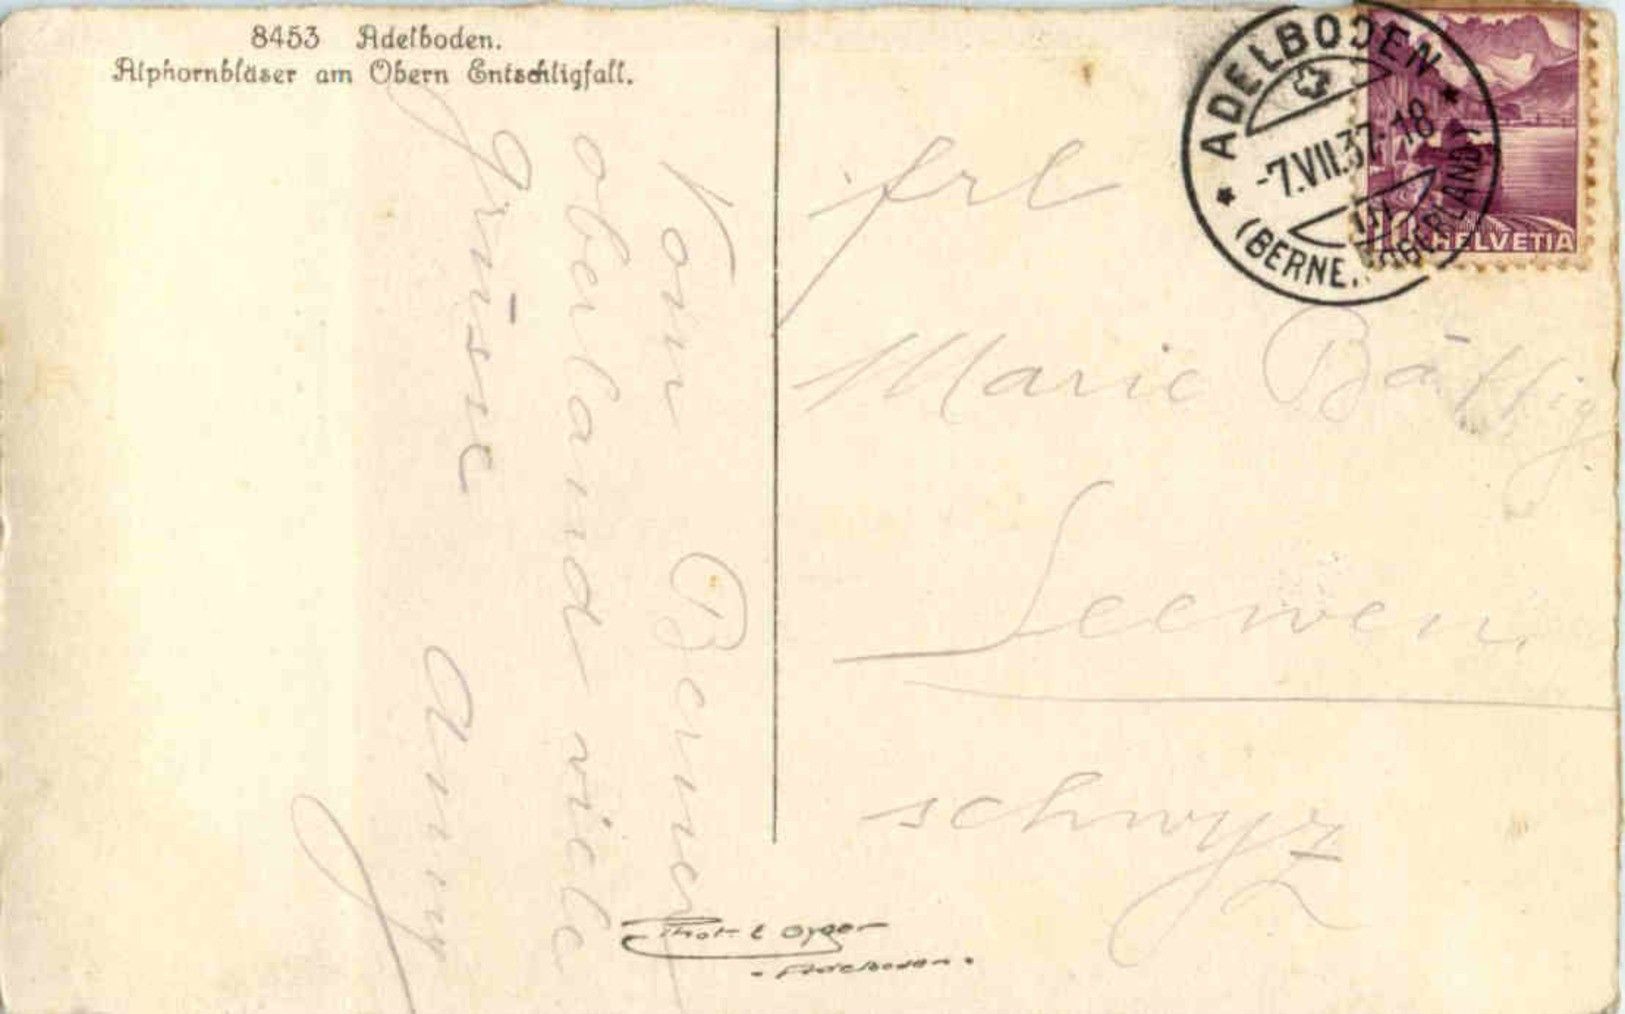 8453 Adelboden.
Alphornbläser am Obern Entschligfall.
ADELBODEN
-7.VII.37.-18
(BERNER OBERLAND)
10 HELVETIA
Vom Berner
oberland viele
grüsse
Anny
frl
Marie Bättig
Seewen
schwyz
Phot. Gyger
- Adelboden -